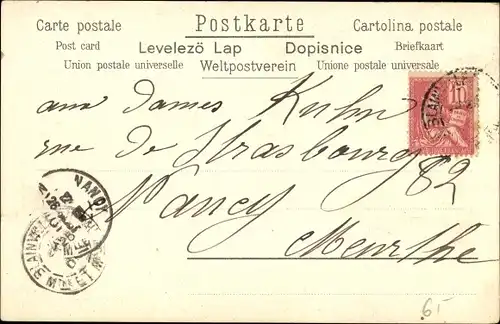 Carte postale Postkarte Cartolina postale
Post card Levelezö Lap Dopisnice Briefkaart
Union postale universelle Weltpostverein Unione postale universale
aux Dames Kuhn
rue de Strasbourg 82
Nancy
Meurthe
NANCY
10
65